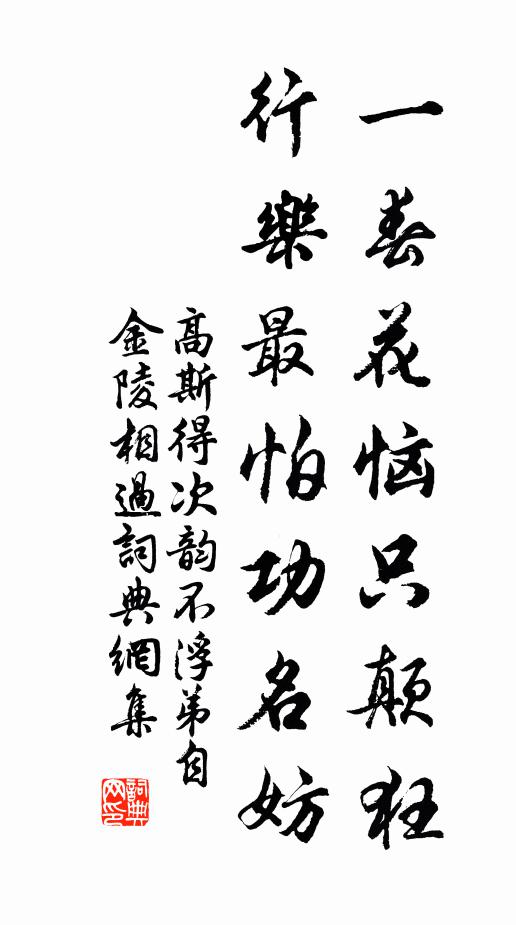 一春花恼只颠狂
行樂最怕功名妨
高斯得次韵不浮弟自
金陵相過詞典網集
詞典网印